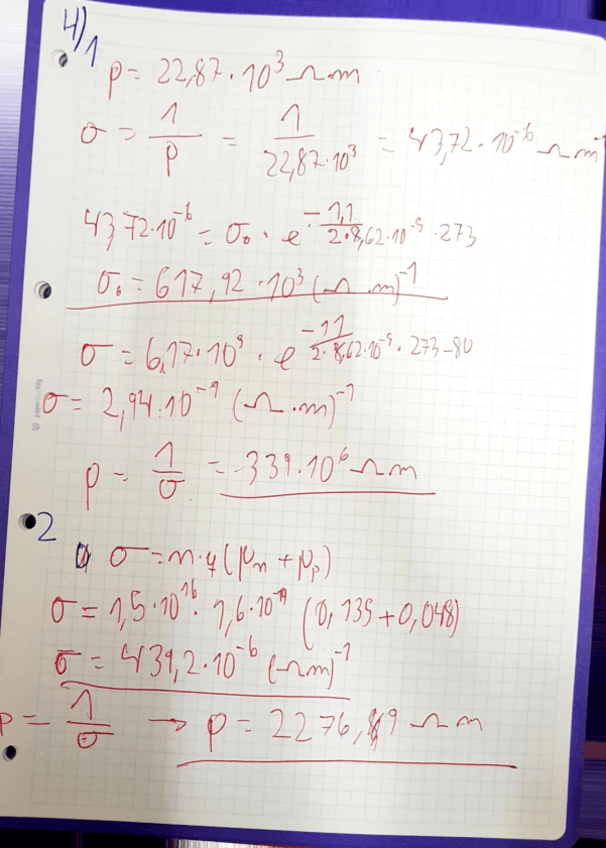 4)1
ρ = 22,87 · 10³ Ωm
σ = 1/ρ = 1/22,87·10³ = 43,72 · 10⁻⁶ Ωm⁻
43,72·10⁻⁶ = σ₀ · e^(-1,1/2·8,62·10⁻⁵·273)
σ₀ = 617,92 · 10³ (Ω·m)⁻¹
σ = 6,17·10⁵ · e^(-1,1/2·8,62·10⁻⁵·273-80)
σ = 2,94·10⁻⁹ (Ω·m)⁻¹
ρ = 1/σ = 339·10⁶ Ωm
2
σ = n·q(μn + μp)
σ = 1,5·10¹⁶ · 1,6·10⁻¹⁹ (0,135 + 0,048)
σ = 439,2·10⁻⁶ (Ωm)⁻¹
ρ = 1/σ → ρ = 2276,89 Ωm